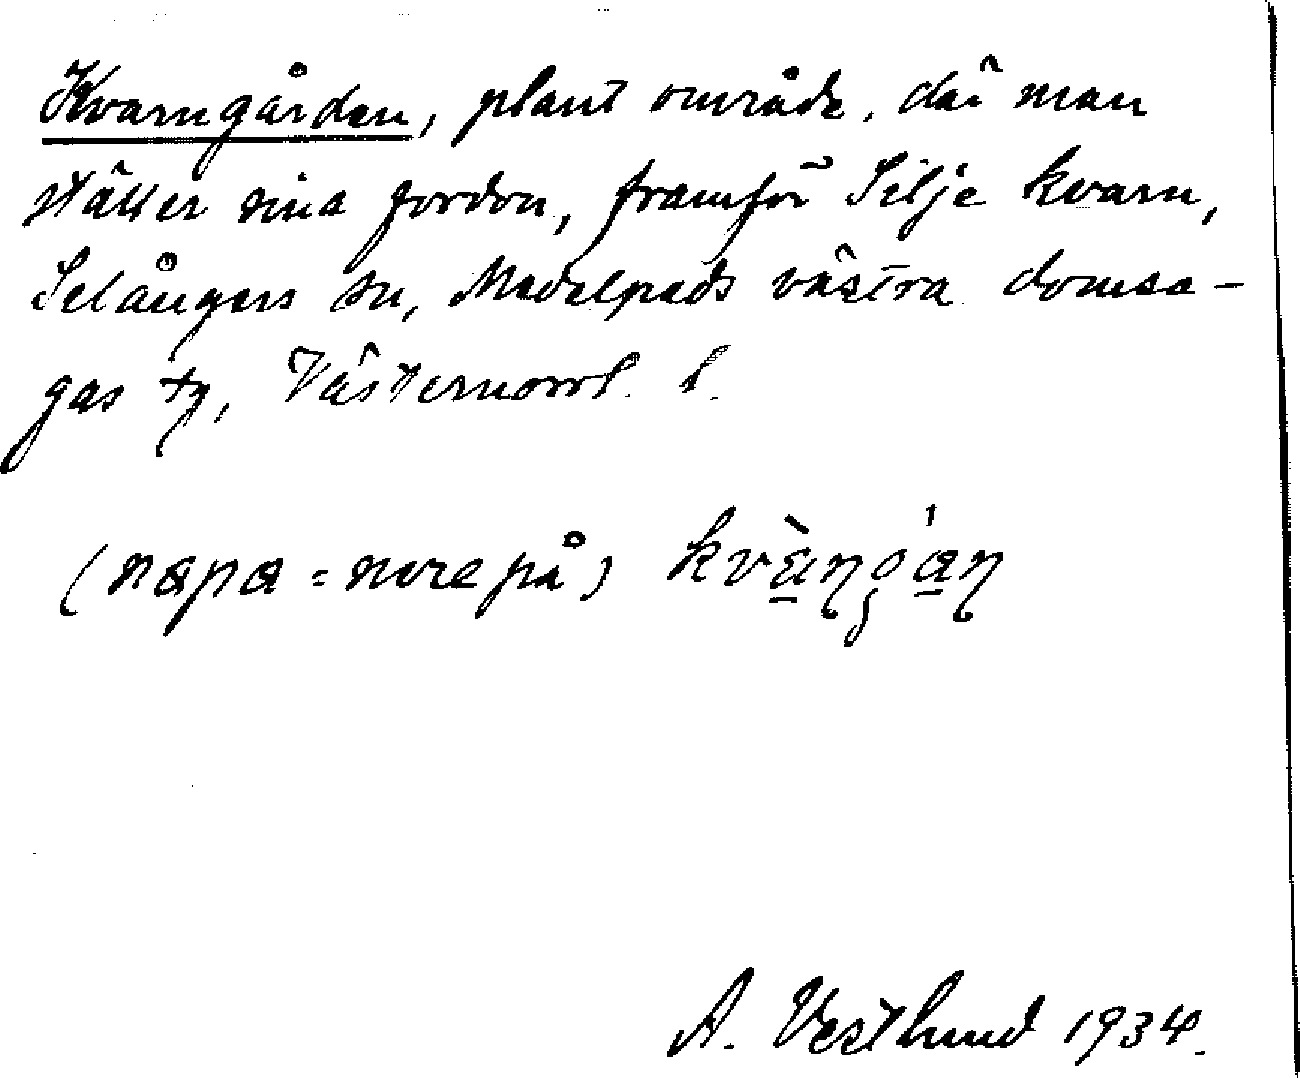 Kvarngården, plant område, där man
ställer sina fordon, framför Silje kvarn,
Selångers sn, Medelpads västra domsa-
gas tg, Västernorrl. l.
(nɑpɑ = nere på) kvàṉgáṉ
A. Vestlund 1934.